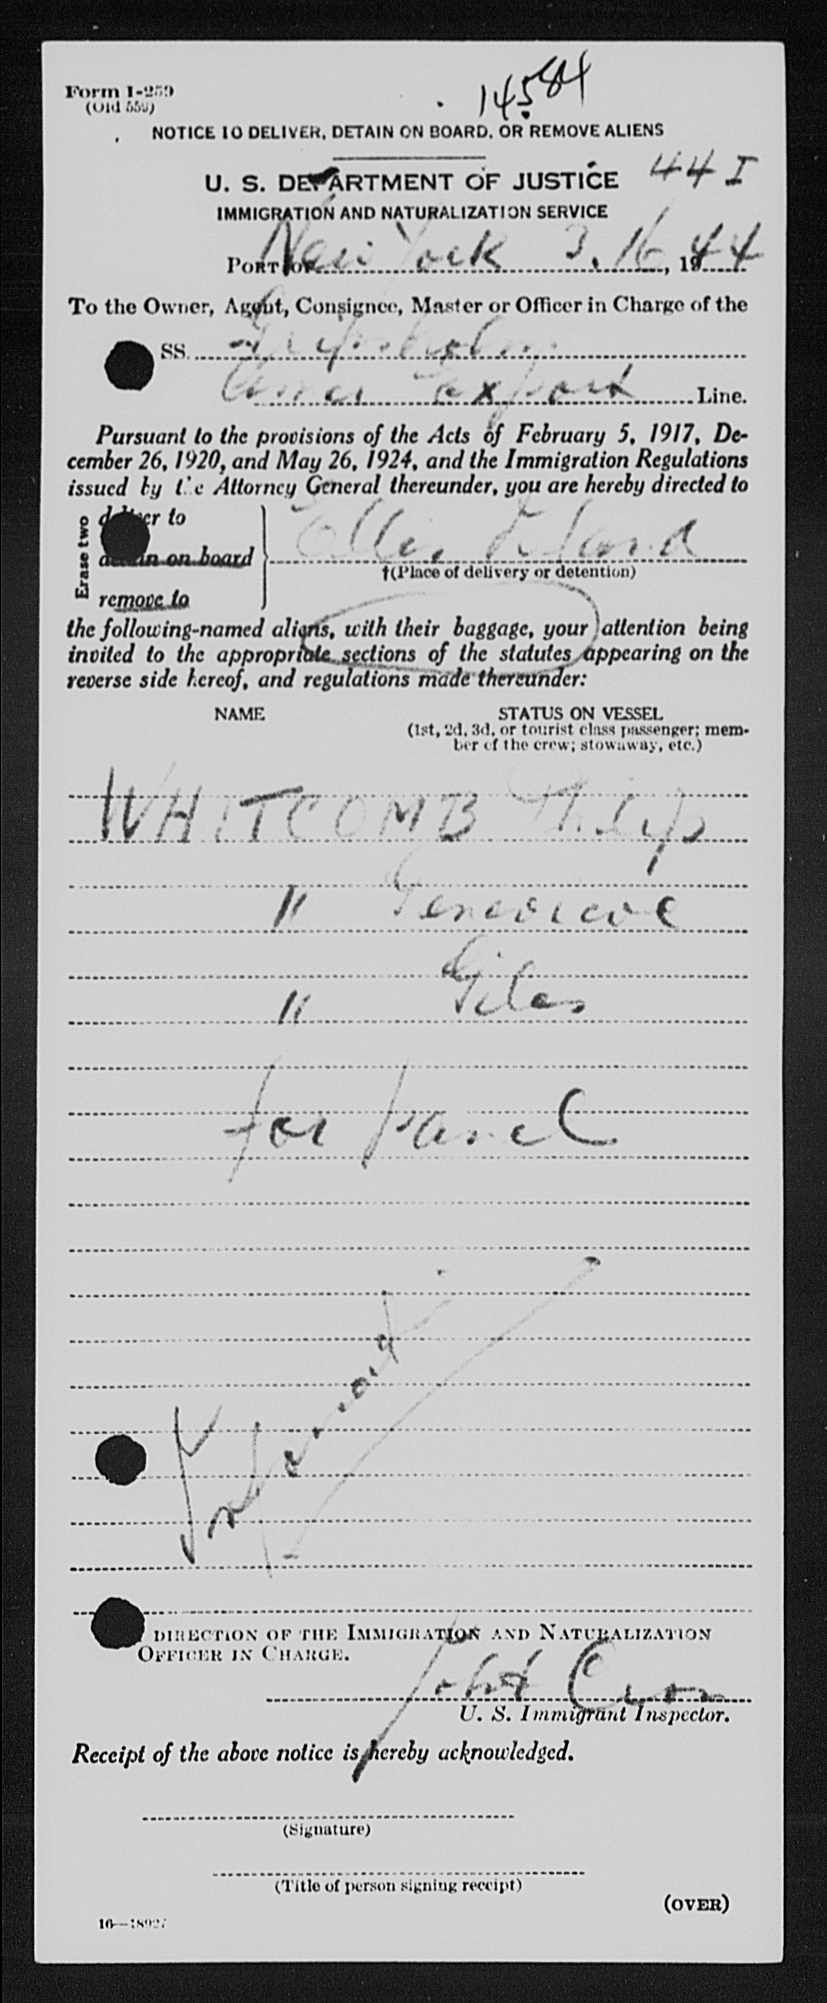 Form I-259
(Old 559)
14584
NOTICE TO DELIVER, DETAIN ON BOARD, OR REMOVE ALIENS
U. S. DEPARTMENT OF JUSTICE
44 I
IMMIGRATION AND NATURALIZATION SERVICE
PORT OF New York 3. 16, 1944
To the Owner, Agent, Consignee, Master or Officer in Charge of the
SS. Gripsholm
Amer Export Line.
Pursuant to the provisions of the Acts of February 5, 1917, De-
cember 26, 1920, and May 26, 1924, and the Immigration Regulations
issued by the Attorney General thereunder, you are hereby directed to
Erase two
deliver to
detain on board
remove to
Ellis Island
†(Place of delivery or detention)
the following-named aliens, with their baggage, your attention being
invited to the appropriate sections of the statutes appearing on the
reverse side hereof, and regulations made thereunder:
NAME
STATUS ON VESSEL
(1st, 2d, 3d, or tourist class passenger; mem-
ber of the crew; stowaway, etc.)
WHITCOMB Philip
" Genevieve
" Giles
for panel
DIRECTION OF THE IMMIGRATION AND NATURALIZATION
OFFICER IN CHARGE.
U. S. Immigrant Inspector.
Receipt of the above notice is hereby acknowledged.
(Signature)
(Title of person signing receipt)
(OVER)
16—18927